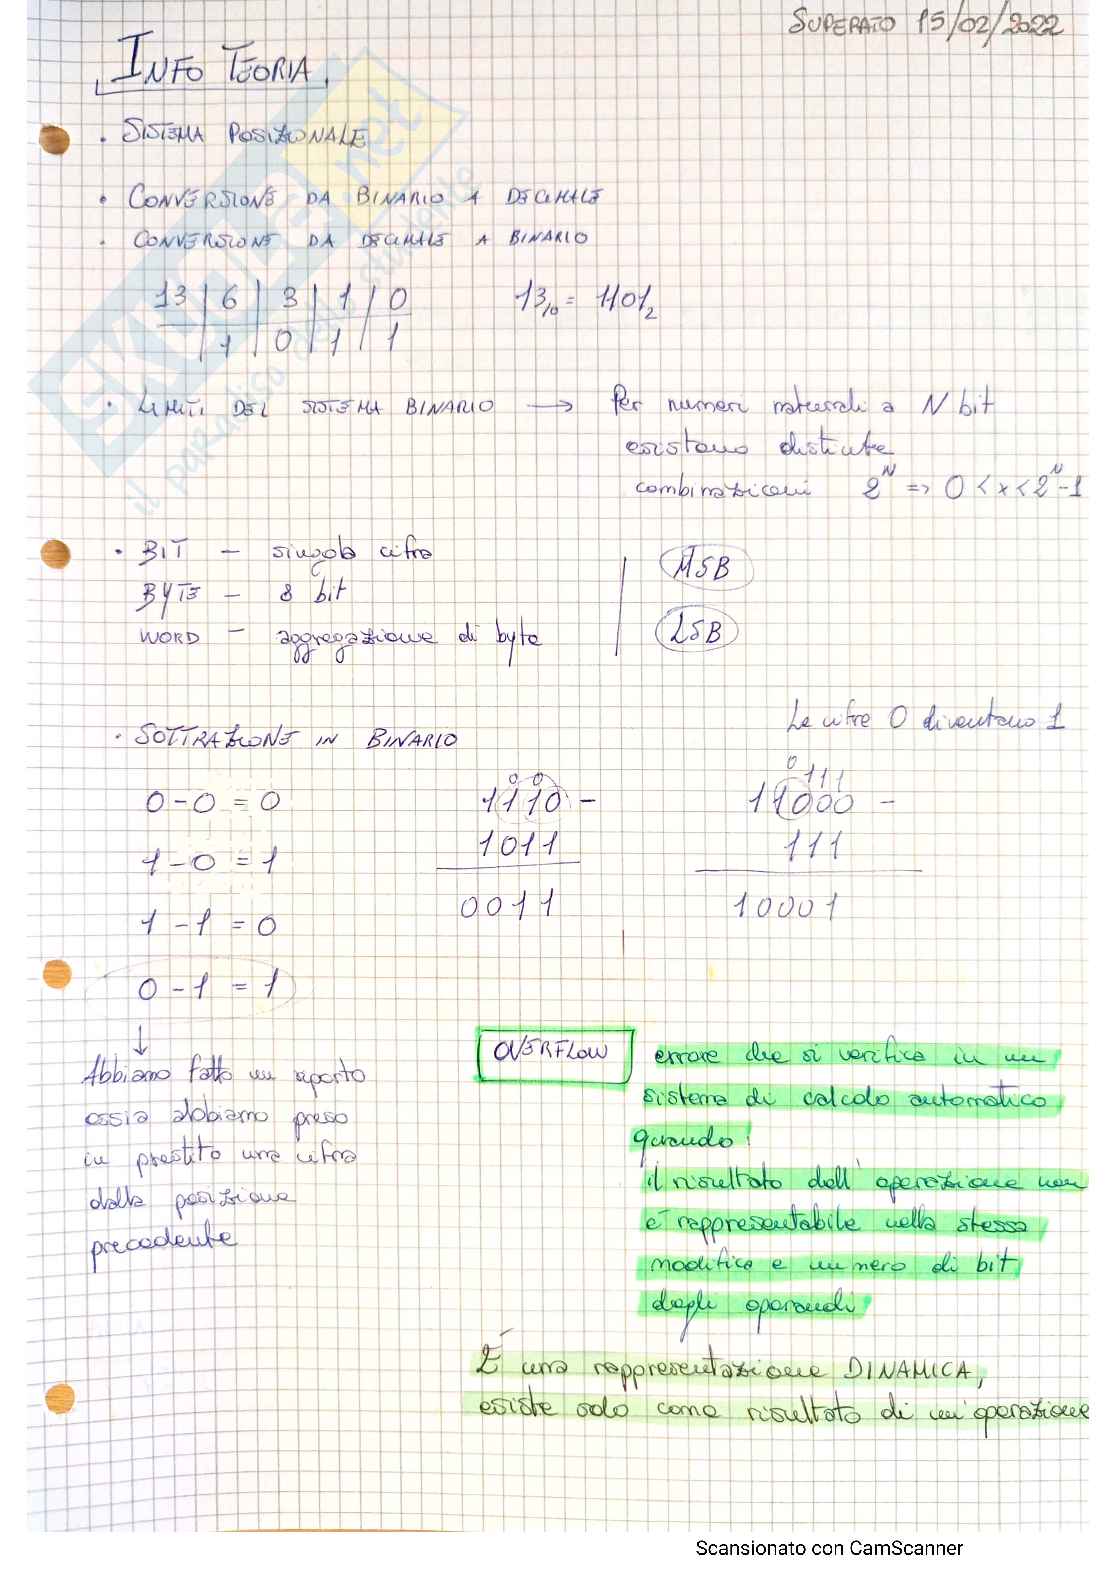 SUPERATO 15/02/2022
INFO TEORIA
• SISTEMA POSIZIONALE
• CONVERSIONE DA BINARIO A DECIMALE
• CONVERSIONE DA DECIMALE A BINARIO
13 | 6 | 3 | 1 | 0
1 | 0 | 1 | 1
13₁₀ = 1101₂
• LIMITI DEL SISTEMA BINARIO → Per numeri naturali a N bit
esistono distinte
combinazioni 2^N => 0 < x < 2^N-1
• BIT - singola cifra
BYTE - 8 bit
WORD - aggregazione di byte
MSB
LSB
• SOTTRAZIONE IN BINARIO
Le cifre 0 diventano 1
0 - 0 = 0
1 - 0 = 1
1 - 1 = 0
0 - 1 = 1
0 0
1110 -
1011
0011
0 111
11000 -
111
10001
↓
Abbiamo fatto un riporto
ossia abbiamo preso
in prestito una cifra
dalla posizione
precedente
OVERFLOW
errore che si verifica in un
sistema di calcolo automatico
quando:
il risultato dell'operazione non
è rappresentabile nella stessa
modifica e numero di bit
degli operandi
È una rappresentazione DINAMICA,
esiste solo come risultato di un'operazione
SKUOLA.net
il paradiso dello studente
Scansionato con CamScanner